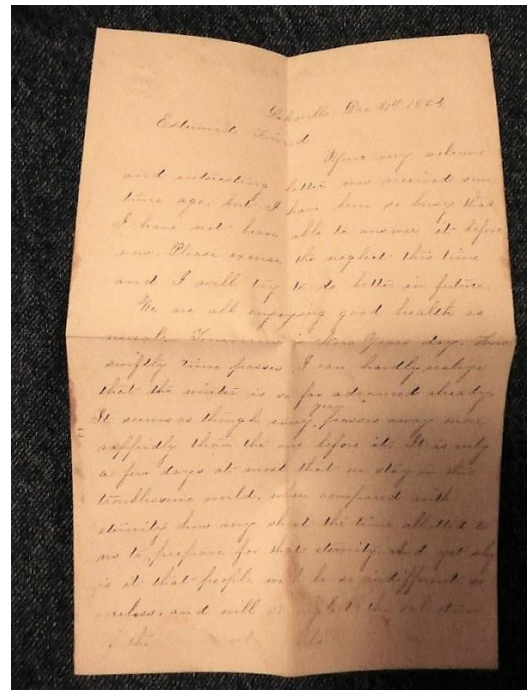 Dec 31st 186
Esteemed Friend
Your very welcome
and interesting letter was received some
time ago, but I have been so busy that
I have not been able to answer it before
now. Please excuse the neglect this time
and I will try to do better in future.
We are all enjoying good health as
usual. Tomorrow is New Years day. How
swiftly time passes I can hardly realize
that the winter is so far advanced already.
It seems as though every year passes away more
rappidly than the one before it. It is only
a few days at most that we stay in this
troublesome world, when compared with
eternity how very short the time allotted to
us to prepare for that eternity. And yet why
is it that people will be so indifferent so
careless, and will neglect the salvation
of the